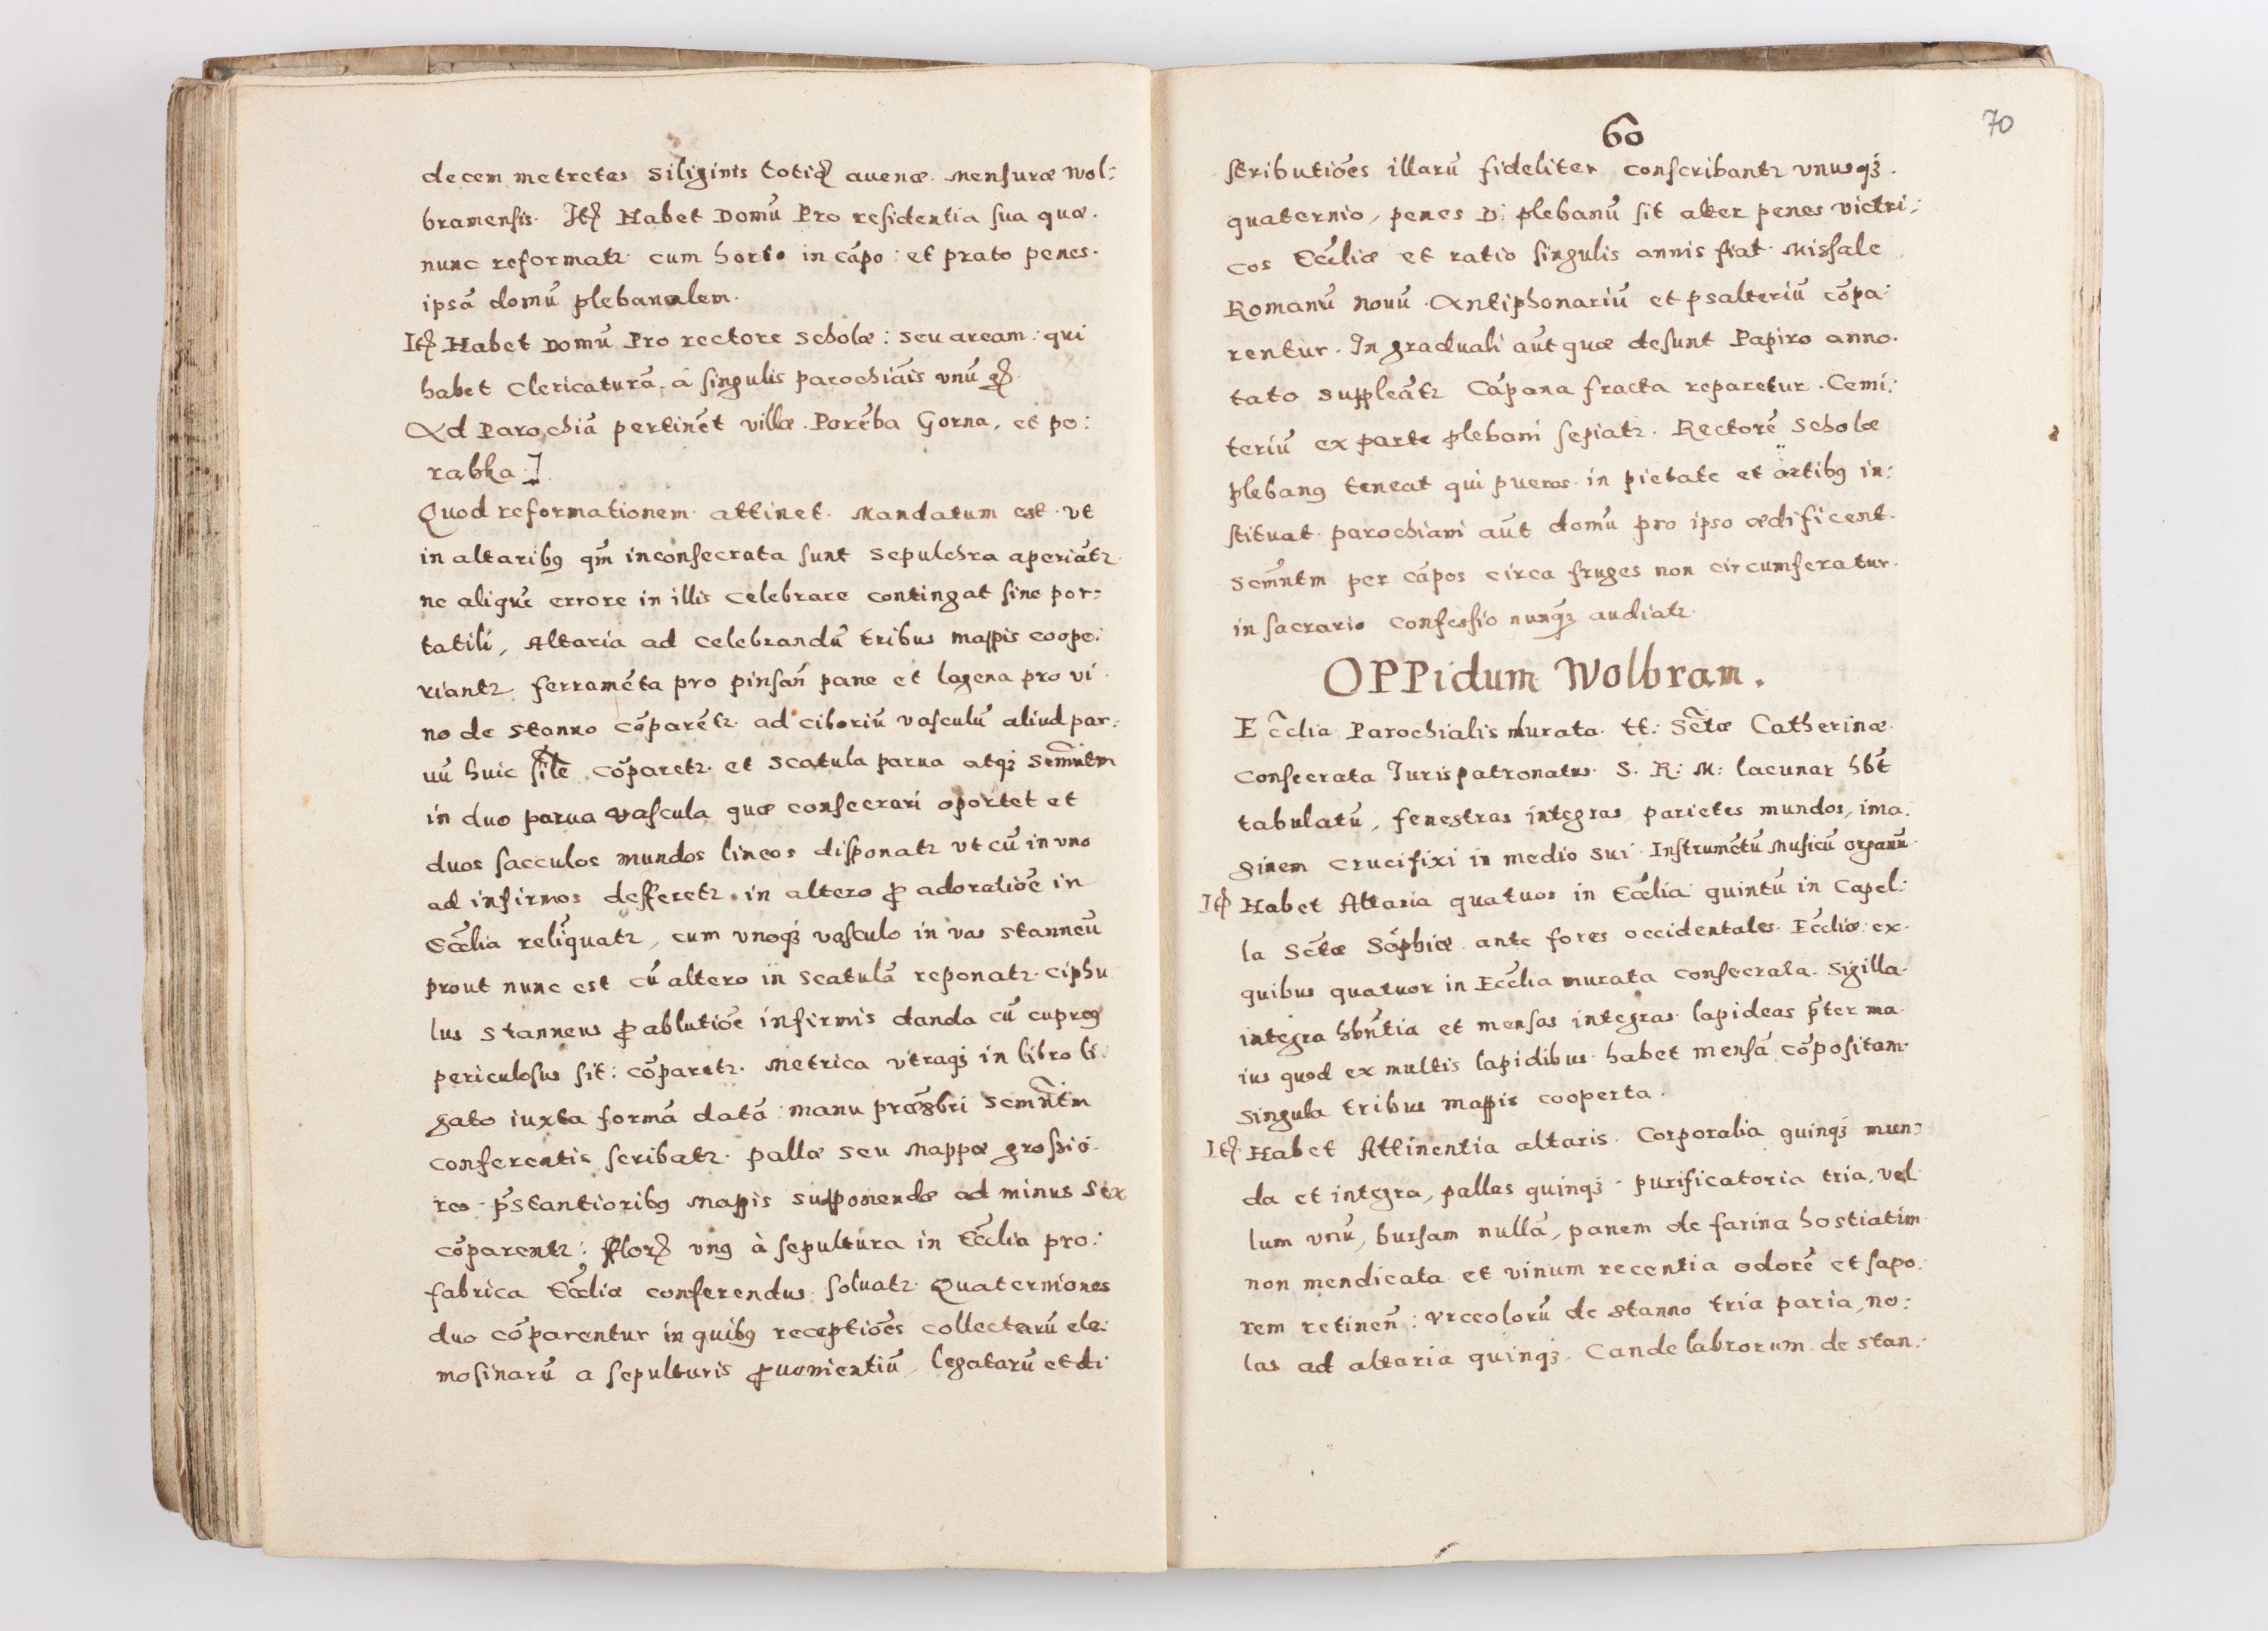 decem metretas Siliginis totiq₃ auenæ. Mensuræ Wol:
bramensis. Itꝫ Habet Domū Pro residentia sua quæ.
nunc reformatꝛ cum horto in cāpo: et prato penes.
ipsā domū plebanalem.
Itꝫ Habet Domū Pro rectore Scholæ: seu aream: qui
habet Clericaturā, à singulis parochiāis vnū gꝫ.
Ad Parochiā pertinēt villæ. Porēba Gorna, et po:
rabka J.
Quod reformationem attinet. Mandatum est. vt
in altaribꝰ qm̄ inconsecrata sunt Sepulchra aperiātꝛ.
ne aliquē errore in illis Celebrare contingat sine por:
tatili, Altaria ad Celebrandū tribus mappis coope:
riantꝛ. ferramēta pro pinsan̄ pane et lagena pro vi
no de stanno cōparētꝛ. ad ciboriū vasculū aliud par:
uū huic sile cōparetꝛ. et scatula parua atqꝫ Semn̄tm
in duo parua vascula quæ consecrari oportet et
duos sacculos mundos lineos disponatꝛ vt cū in vno
ad infirmos defferetꝛ. in altero ꝓ adoratiōe in
Eccl̄ia relīquatꝛ, cum vnoqꝫ vasculo in vas stanneū
prout nunc est cū altero in scatulā reponatꝛ. ciphu
lus stanneus ꝓ ablutiōe infirmis danda cū cupreꝰ
periculosus sit: cōparetꝛ. Metrica vtraqꝫ in libro li:
gato iuxta formā datā: manu præsbri Semn̄tm
conferentis scribatꝛ. pallæ seu Mappæ grossio:
res. p̄stantioribꝰ Mappis supponendæ ad minus Sex
cōparentꝛ: florꝫ vnꝰ à sepultura in Eccl̄ia pro:
fabrica Eccl̄iæ conferendus. soluatꝛ. Quaterniones
duo cōparentur in quibꝰ receptiōes collectarū ele:
mosinarū a sepulturis ꝓuenientiū, legatarū et di
60
70
stributiōes illarū fideliter conscribantꝛ vnusqꝫ.
quaternio, penes D: plebanū sit alter penes victri:
cos Eccl̄iæ et ratio singulis annis fiat. Missale
Romanū nouū. Antiphonariū et psalteriū cōpa:
rentur. In graduali aūt quæ desunt Papiro anno.
tato suppleātꝛ Cāpana fracta reparetur. Cemi:
teriū ex parte plebani sepiatꝛ. Rectorē Scholæ
plebanꝰ teneat qui pueros in pietate et artibꝰ in:
stituat. parochiani aūt domū pro ipso ædificent.
Semn̄tm per cāpos circa fruges non circumferatur.
in sacrario confessio nunqꝫ audiatꝛ.
OPPidum Wolbram.
Eccl̄ia Parochialis Murata. tt: Sctæ Catherinæ.
Consecrata Jurispatronatus. S. R: M: lacunar hb̄t
tabulatū, fenestras integras, parietes mundos, ima:
ginem Crucifixi in medio sui. Instrumētū Musicū organū.
Itꝫ Habet Altaria quatuor in Eccl̄ia quintū in Capel:
la Sctæ Sophiæ. ante fores occidentales. Eccl̄iæ: ex.
quibus quatuor in Eccl̄ia murata consecrata. Sigilla.
integra hbn̄tia et mensas integras. lapideas p̄ter ma.
ius quod ex multis lapidibus. habet mensā cōpositam.
Singula tribus mappis cooperta.
Itꝫ Habet Attinentia altaris. Corporalia quinqꝫ mun:
da et integra, pallas quinqꝫ. purificatoria tria, vel
lum vnū, bursam nullā, panem de farina hostiatim
non mendicata et vinum recentia odorē et sapo:
rem retinen̄: Vrceolorū de stanno tria paria, no:
las ad altaria quinqꝫ. Candelabrorum. de stan: